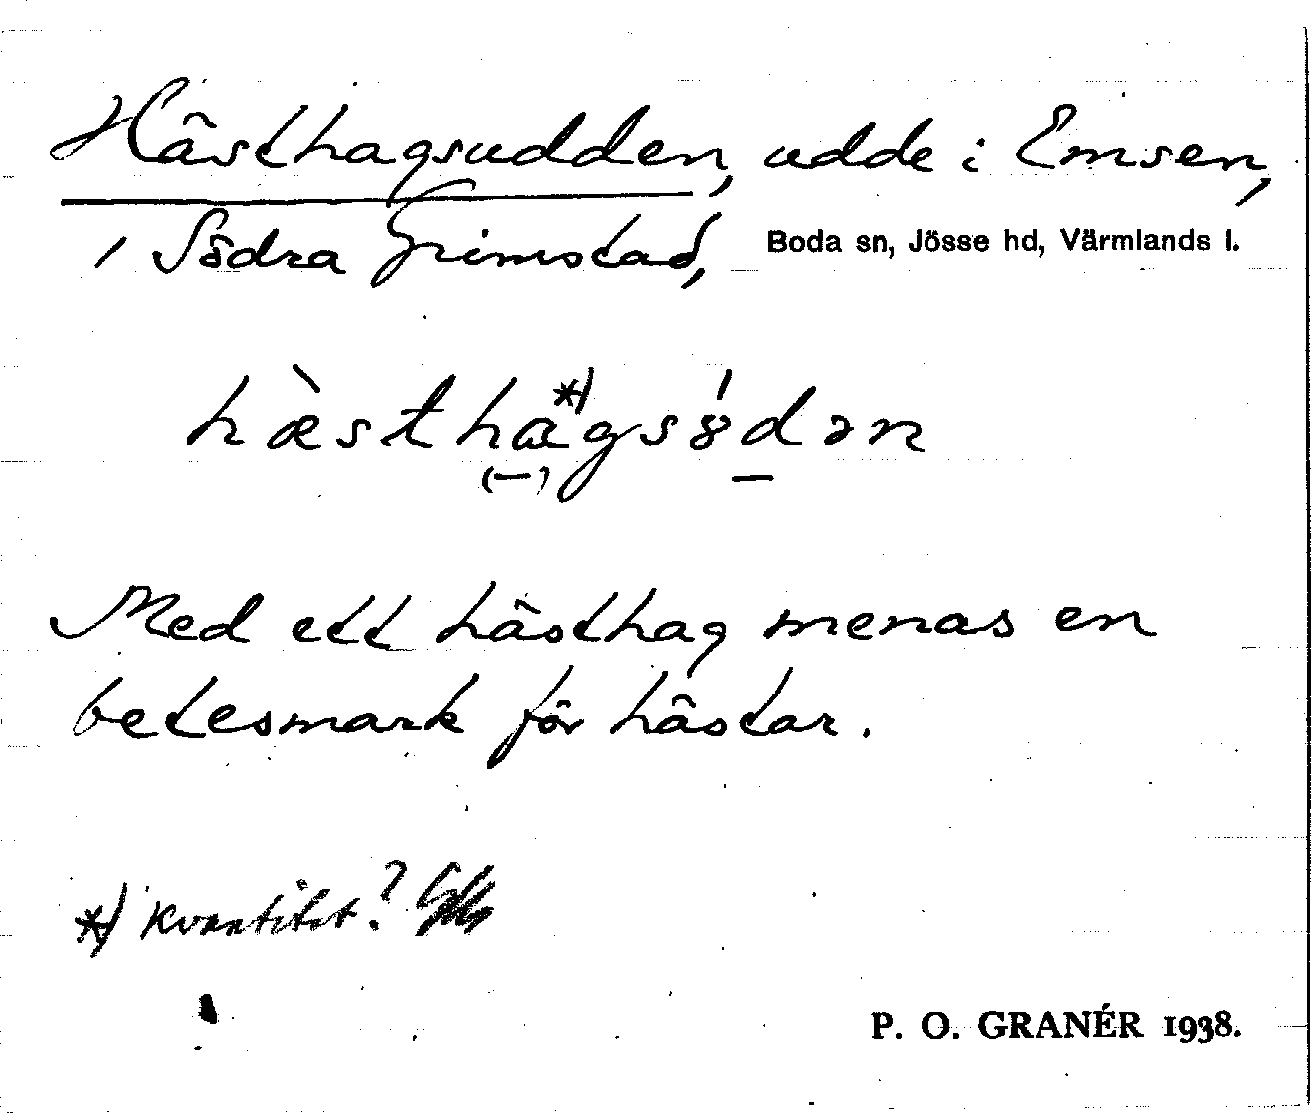 Hästhagsudden, udde i Emsen,
i Södra Grimstad, Boda sn, Jösse hd, Värmlands l.
hæ̀sthag*)sȣ́dən
(–) –
Med ett hästhag menas en
betesmark för hästar.
*) Kvantitet?
P. O. GRANÉR 1938.